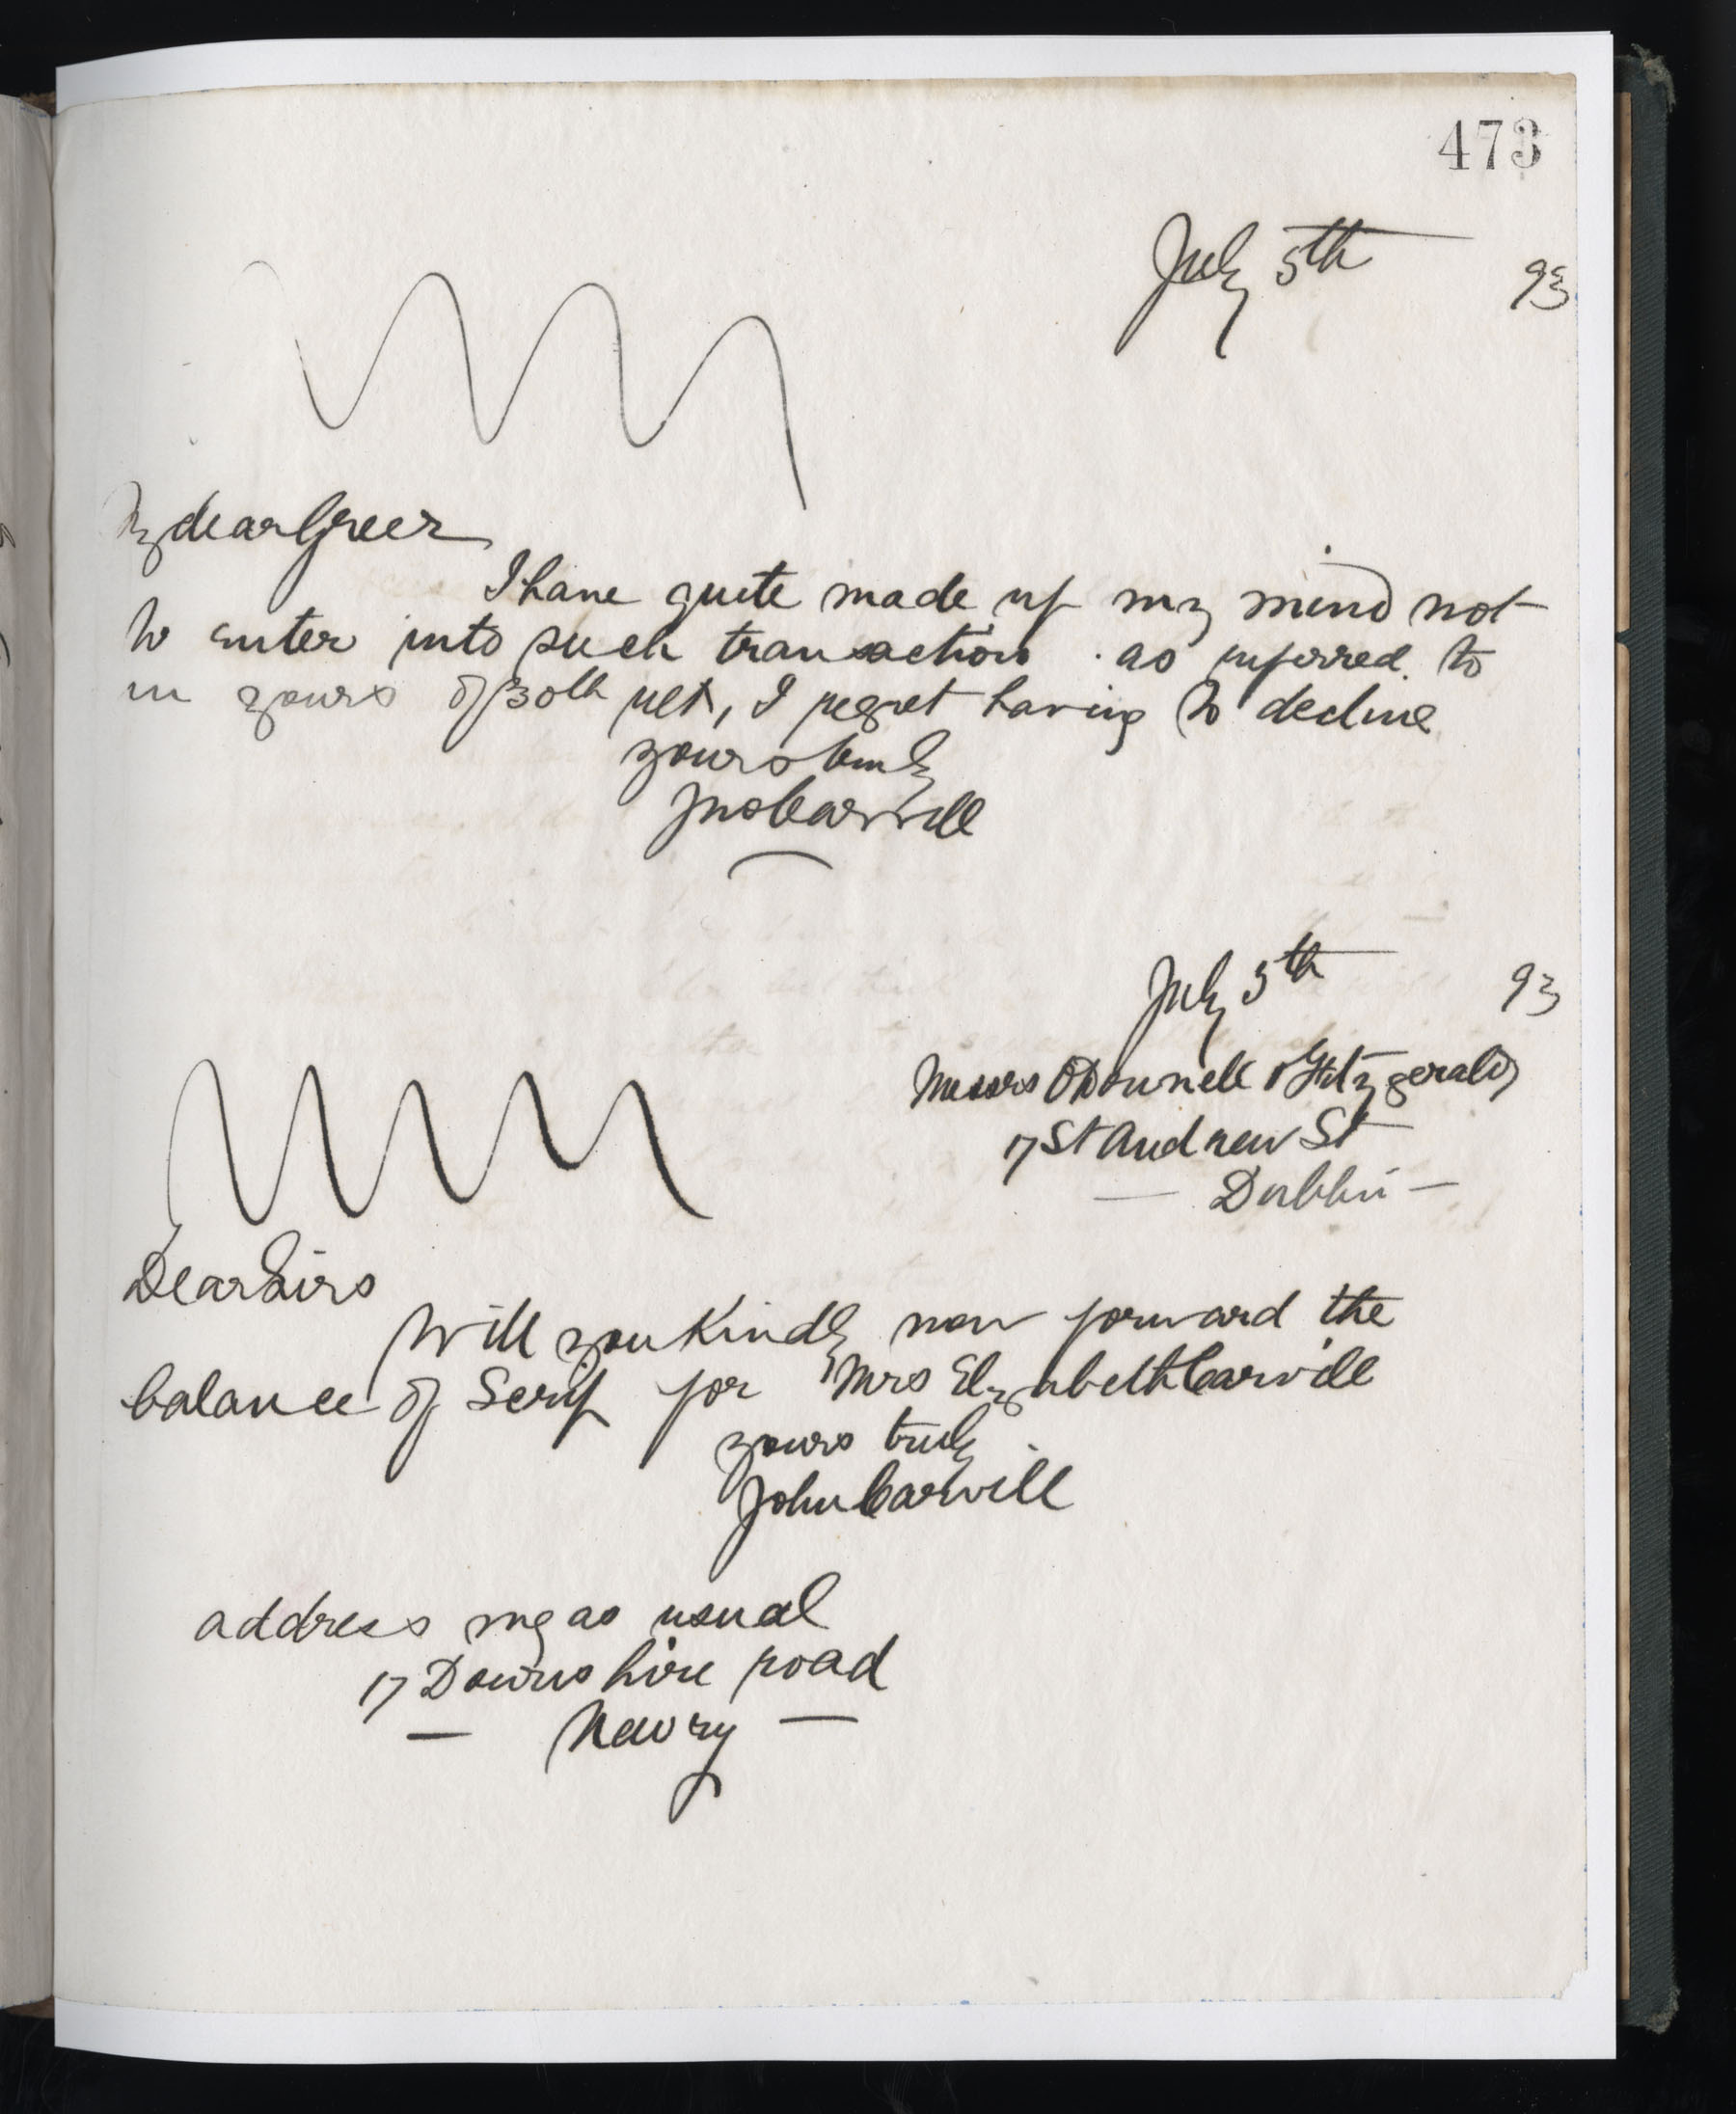 473
July 5th 93
My dear Greer
I have quite made up my mind not
to enter into such transaction as referred to
in yours of 30th ult, I regret having to decline
yours truly
Jno Carvill
July 5th 93
Messrs O'Donnell & Fitzgerald
17 St Andrew St
Dublin
Dear Sirs
Will you Kindly now forward the
balance of Scrip for Mrs Elizabeth Carvill
yours truly
John Carvill
address me as usual
17 Downshire road
Newry